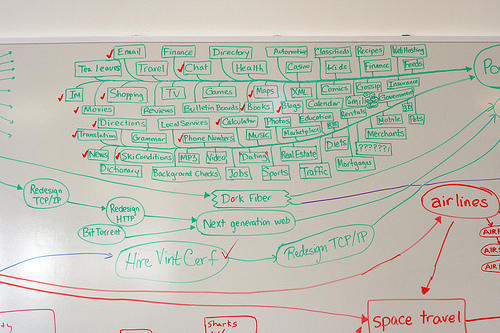 Email Finance Directory Automotive Classifieds Recipes WebHosting
Tea leaves Travel Chat Health Casino Kids Finance Feeds
IM Shopping TV Games Maps XML Comics Gossip Insurance
Movies Reviews Bulletin Boards Books Blogs Calendar Government
Directions Local Services Calculator Photos Education Rentals Mobile Pets
Translation Grammar Phone Numbers Music Marketplace Merchants
News Ski Conditions MP3 Video Dating Real Estate Diets ??????!
Dictionary Background Checks Jobs Sports Traffic Mortgages
Po
Redesign
TCP/IP
Dork Fiber
Redesign
HTTP
Next generation web
BitTorrent
airlines
Hire Vint Cerf
Redesign TCP/IP
AIR
AIR
space travel
sharks
ty